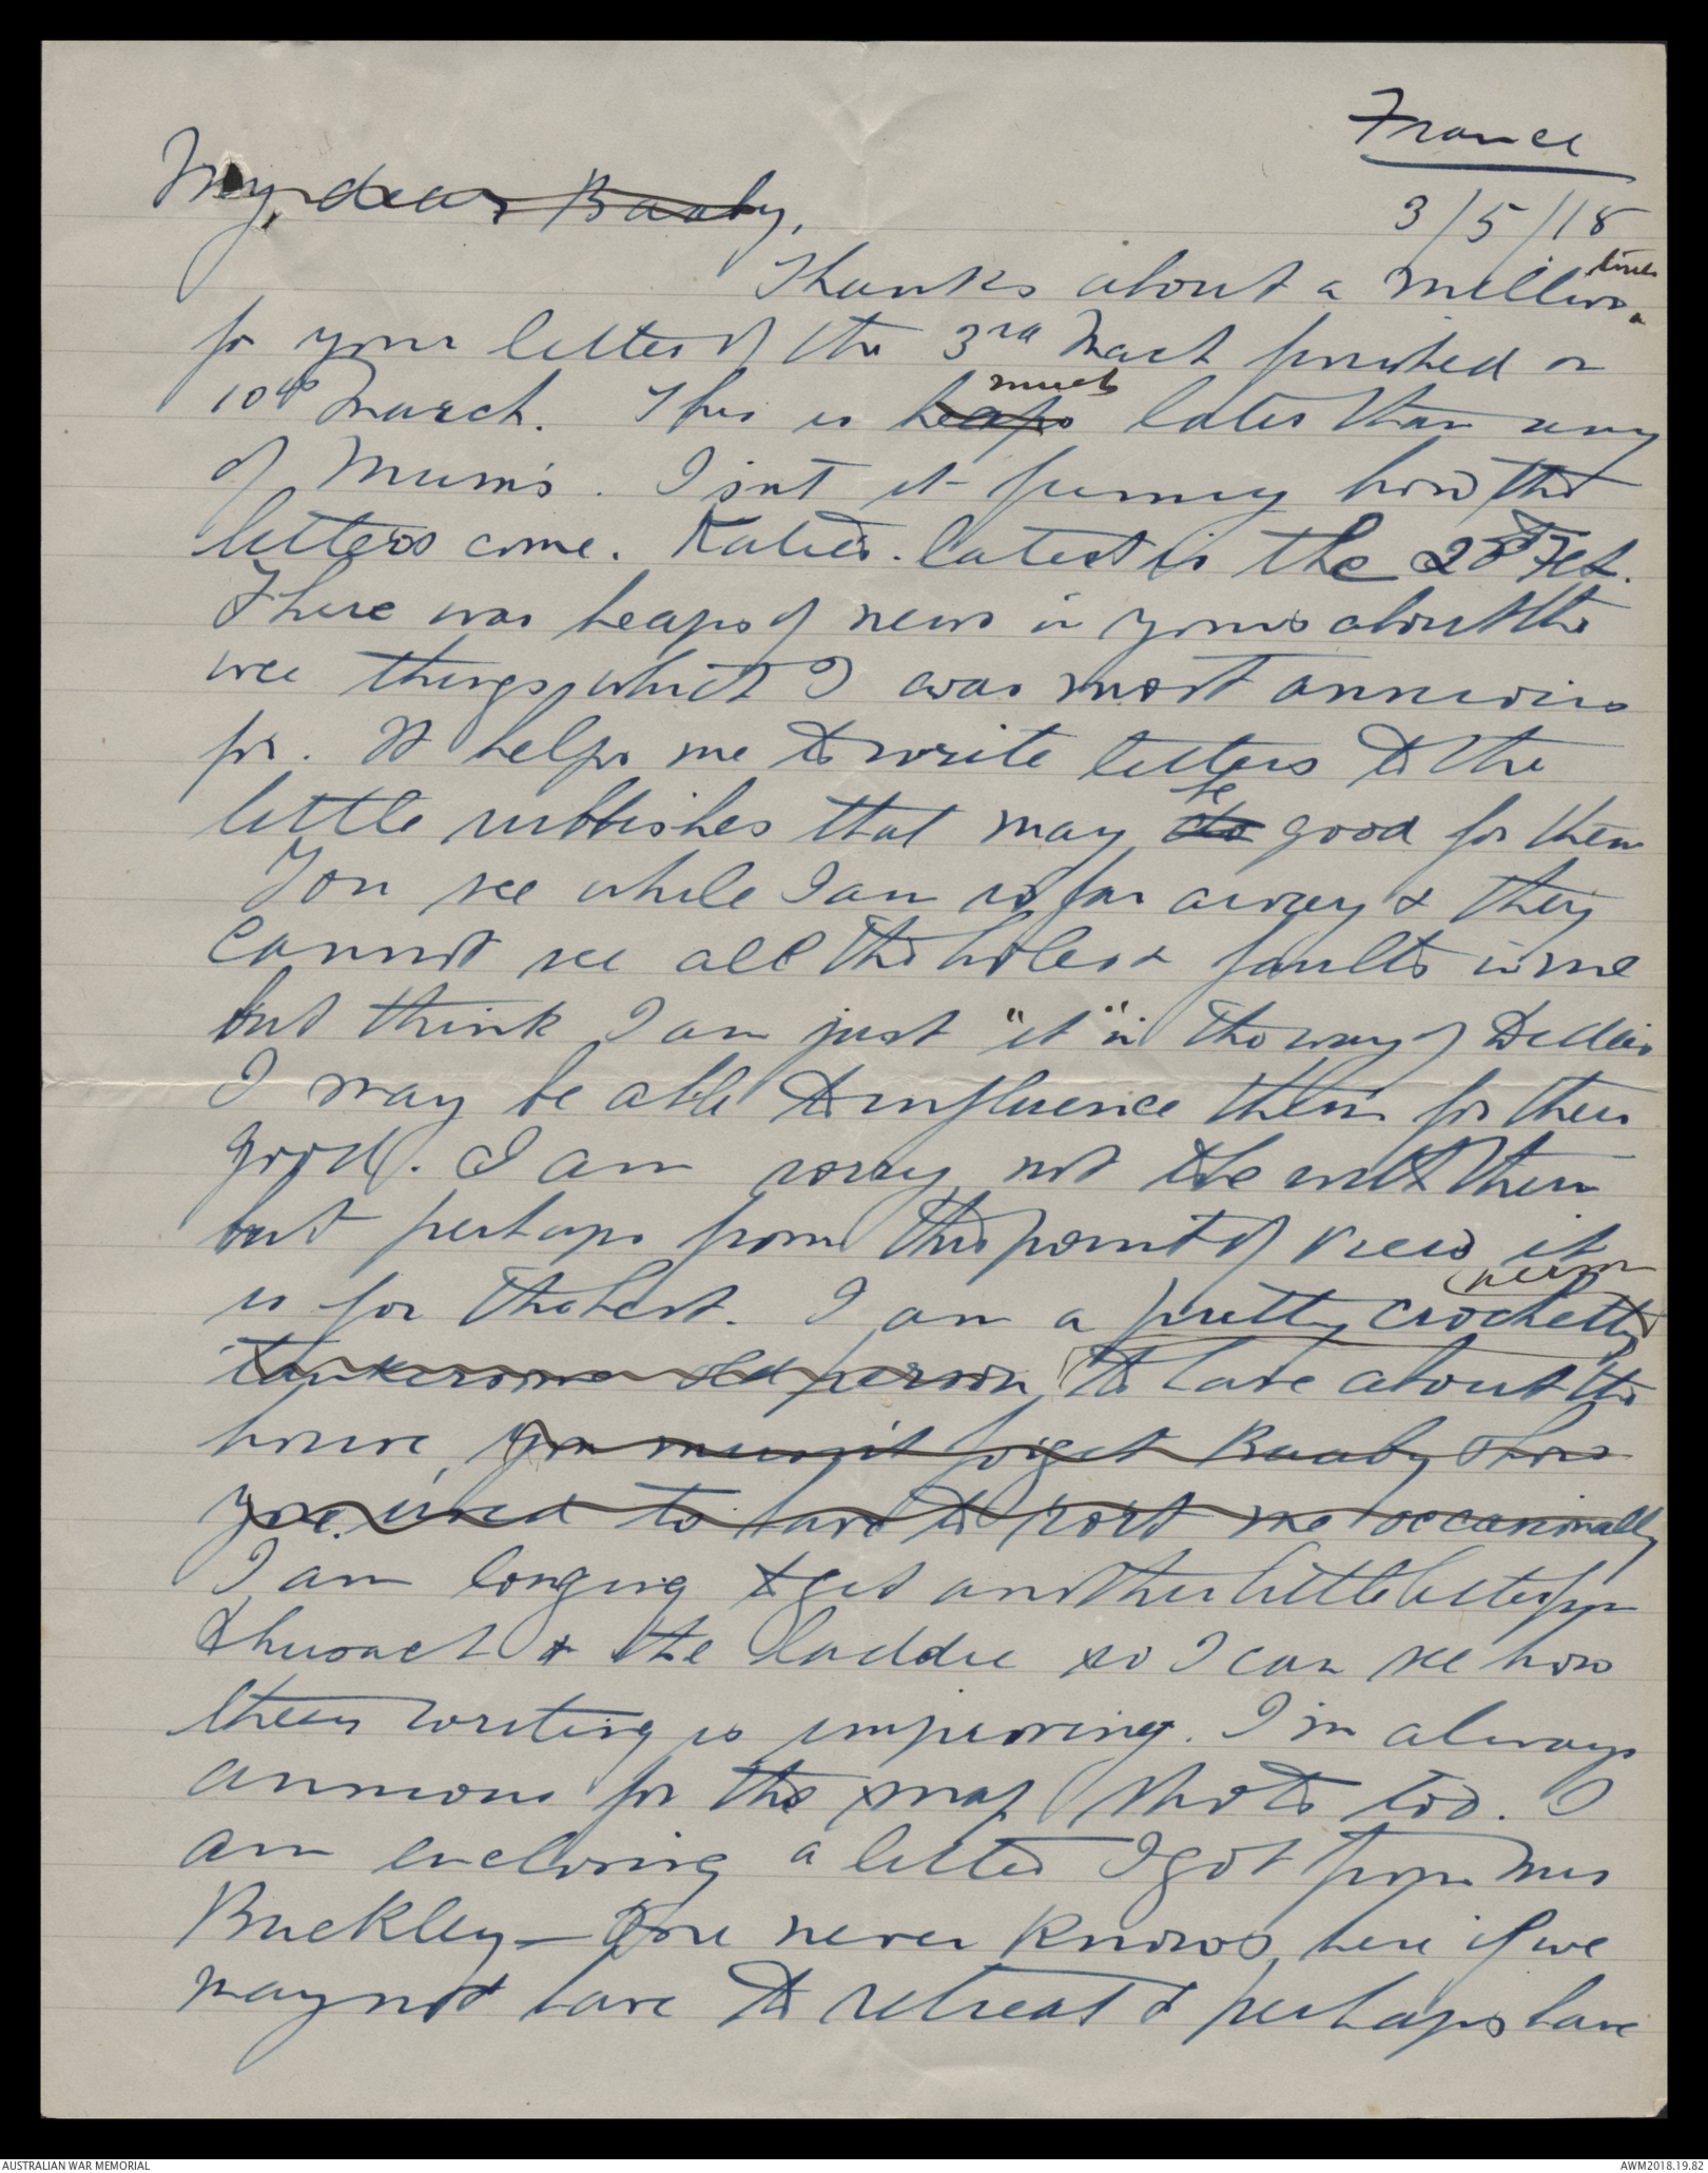 France
3/5/18
My dear Baaby,
Thanks about a million times
for your letter of the 3rd March finished on
10th March. This is heaps much later than any
of Mum's. Isnt it funny how the
letters come. Katie's latest is the Feb.
There was heaps of news in yours about the
wee things, which I was most anxious
for. It helps me to write letters to the
little rubbishes that may do be good for them
You see while I am so far away & they
cannot see all the holes & faults in me
but think I am just "it" in the way of Daddies
I may be able to influence them for their
good. I am sorry not to be with them
but perhaps from this point of view it
is for the best. I am a pretty crochetty person
tankersome old person, to have about the
house, you musn't forget Baaby how
you used to have to roast me occasionally
I am longing to get another little letter from
& the laddie so I can see how
their writing is improving. I'm always
anxious for the snap shots too. I
am enclosing a letter I got from Mrs
Buckley — One never knows here if we
may not have to retreat & perhaps have
AUSTRALIAN WAR MEMORIAL
AWM2018.19.82